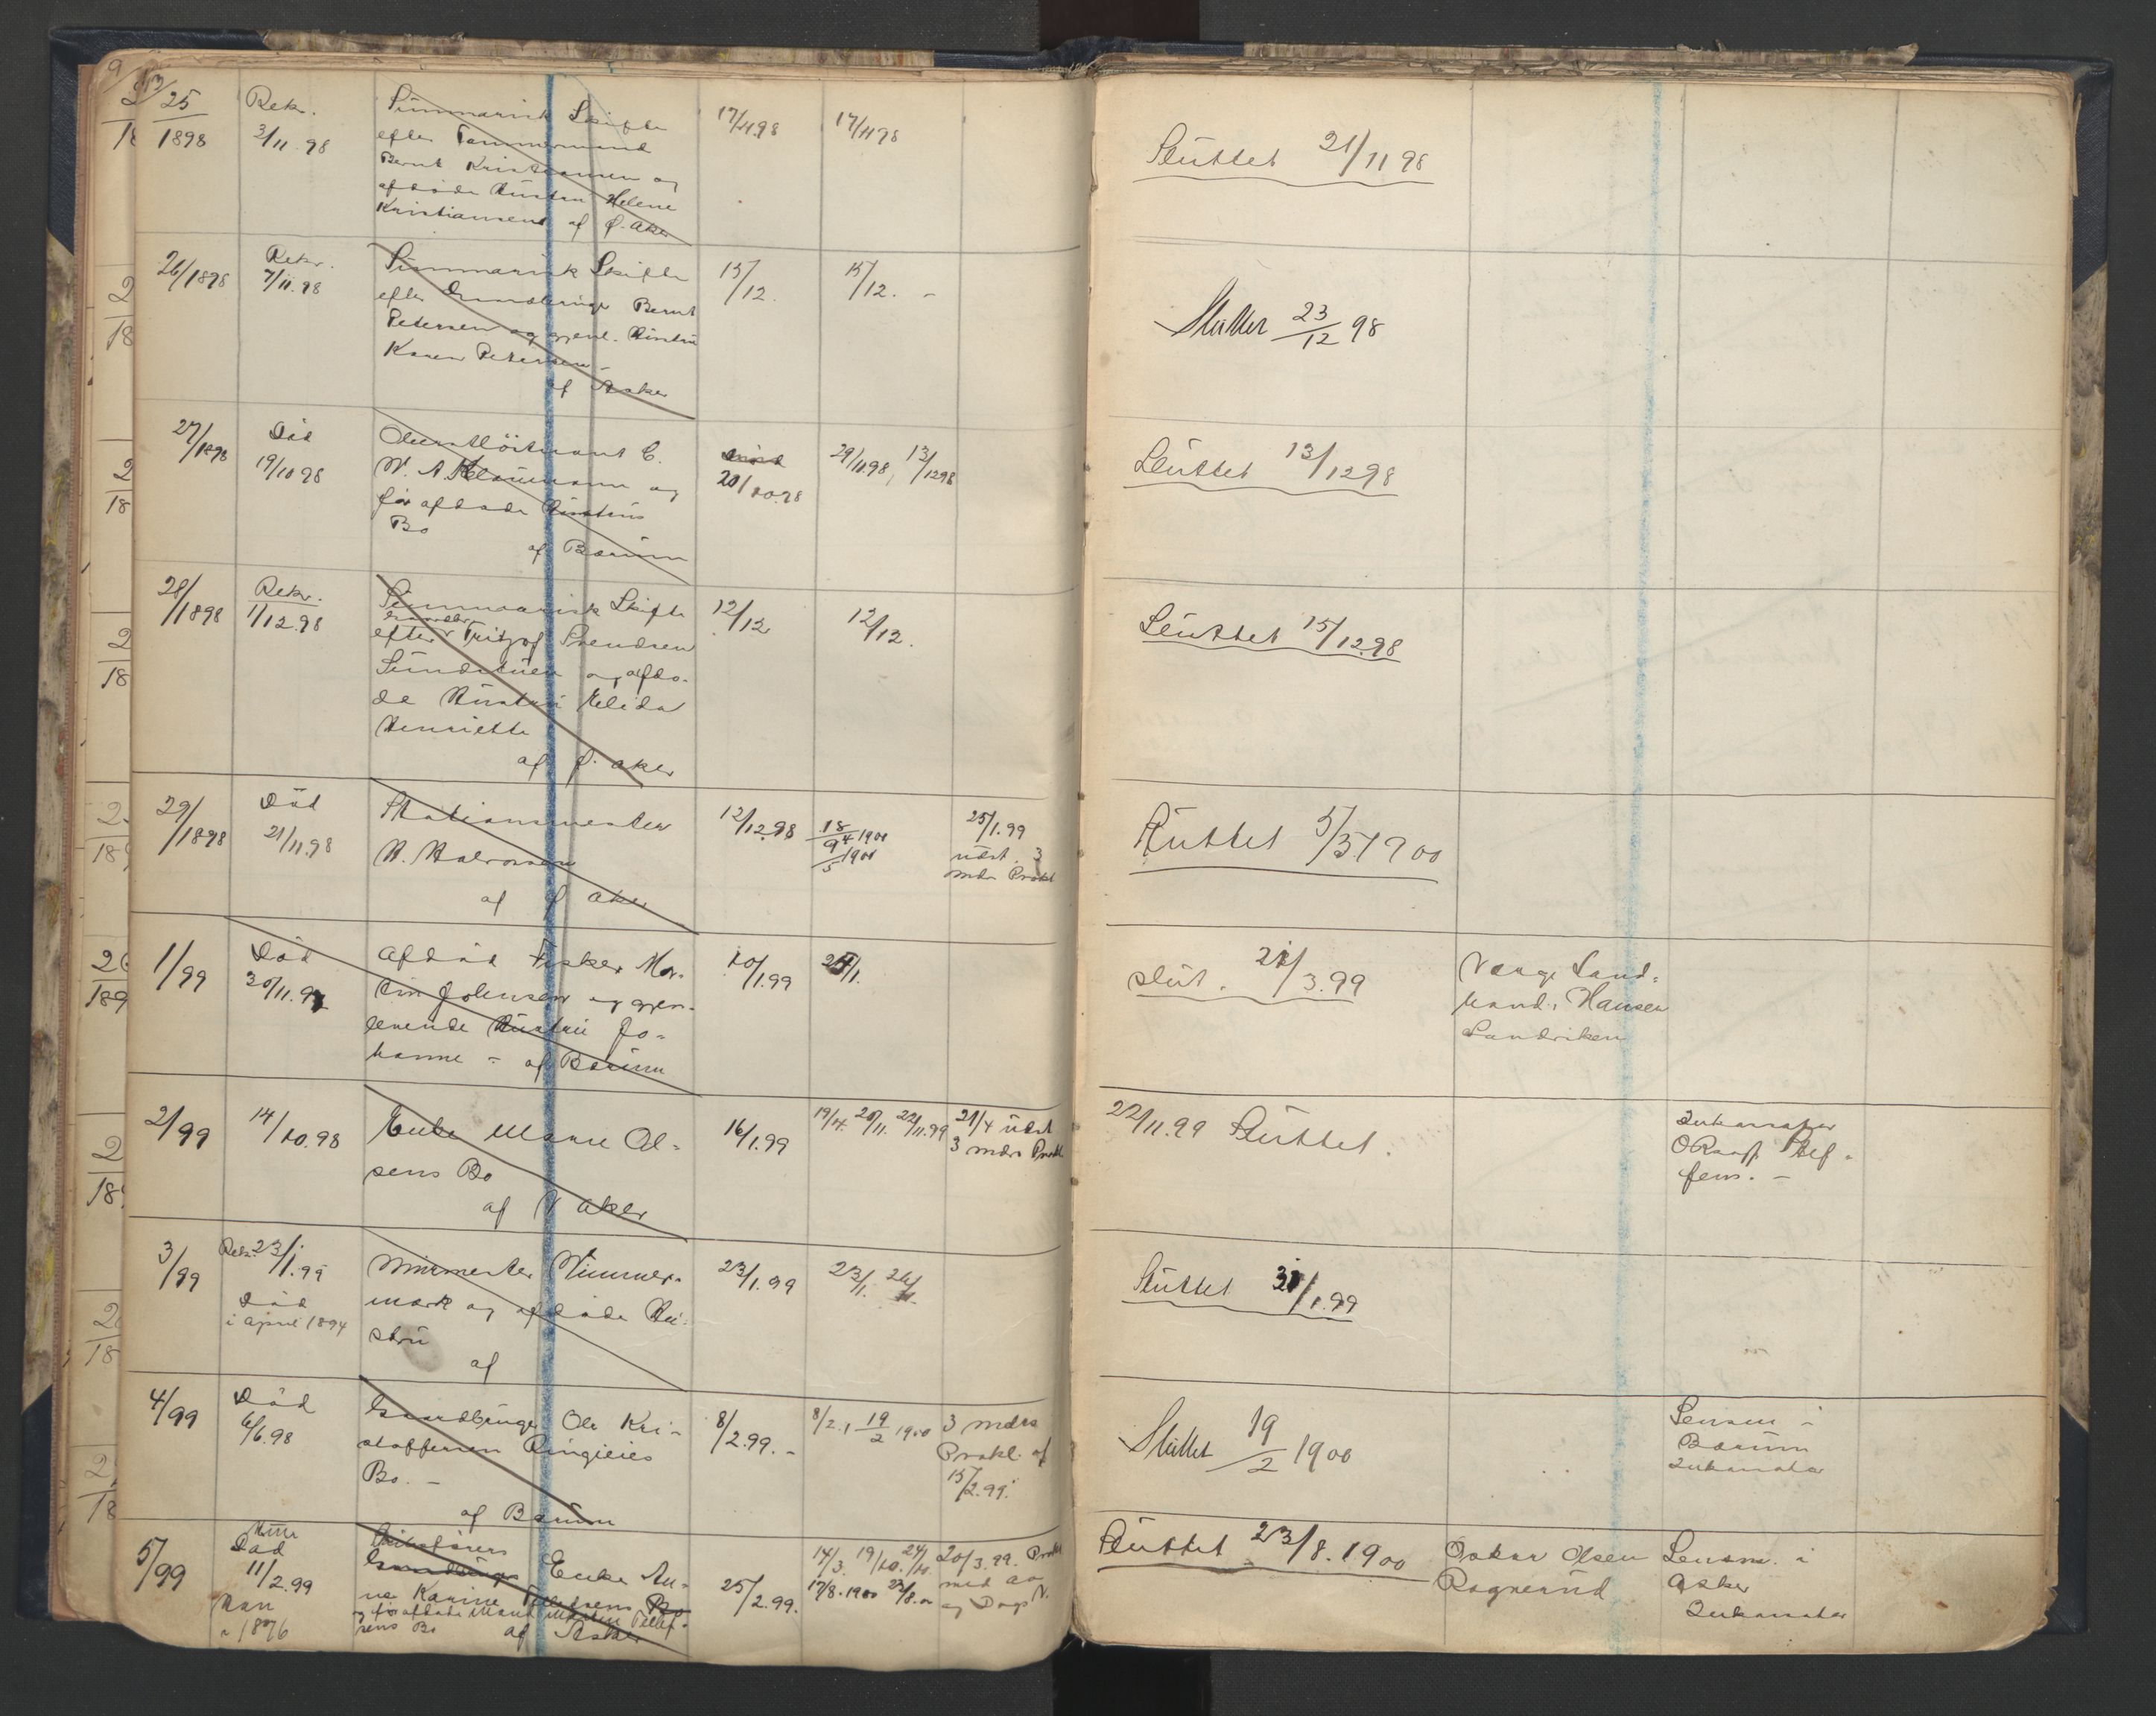 25
1898
Rekv.
3/11 98
Summarisk Skifte
efter Tømmermand
Bernt Kristiansen og
afdøde Hustru Helene
Kristiansens af Ø. Aker
17/11 98
17/11 98
Sluttet 21/11 98
26/1898
Rekv.
7/11.98
Summarisk Skifte
efter Bernt
Petersen og gjenl. Hustru
Karen Petersen
af Asker
15/12.
15/12. -
Sluttet 23/12 98
27/1898
Død
19/10 98
Oberstløitnant C.
W. A. og
før afdøde Hustrus
Bo
af Bærum
20/10.98
29/11 98, 13/12 98
Sluttet 13/12 98
28/1898
Rekv.
1/12.98
Summarisk Skifte
efter Fritjof Svendsen
og afdø-
de Hustru Elida
Henriette
af Ø. Aker
12/12
12/12.
Sluttet 15/12.98
29/1898
Død
21/11.98
Stationsmester
H. Halvorsen
af Ø Aker
12/12.98
18/4 1900
9/5 1900
25/1.99
Udst. 3
mdr Prokl
Sluttet 5/5.1900
1/99
Død
30/11.98
Afdød Fisker Mar-
tin Johnsen og gjen-
levende Hustru Jo-
hanne - af Bærum
10/1.99
24/1.
Slut. 21/3.99
Værge Land-
hand. Hansen
Sandviken
2/99
14/10.98
Enke Maren Ol-
sens Bo
af V Aker
16/1.99
19/4. 20/11. 22/11.99
21/4 Udst
3 mdrs Prokl
22/11.99 Sluttet.
Inkassator
O Raaf Stef-
fens. -
3/99
Rekv. 23/1.99
Død
i April 1894
Murmester Wimmer-
mark og afdøde Hu-
stru
af
23/1.99
23/1. 26/1.
Sluttet 31/1.99
4/99
Død
6/6.98
Gaardbruger Ole Kri-
stoffersen Ringieies
Bo. -
af Bærum
8/2.99. -
8/2, 19/2 1900
3 mdrs
Prokl. af
15/2.99.
Sluttet 19/2 1900
Lensm i
Bærum
Inkassator
5/99
Død
11/2.99
Man
i 1876
Enke An-
ne Karine Tellefsens Bo
og før afdøde Mand Morten Tellef-
sens Bo af Asker
25/2.99.
14/3. 19/10. 24/11
17/8.1900 23/8.00
20/3.99. Prokl
med Aa
og Dags N.
Sluttet 23/8.1900
Oskar Olsen
Rognerud
Lensm. i
Asker
Inkassator